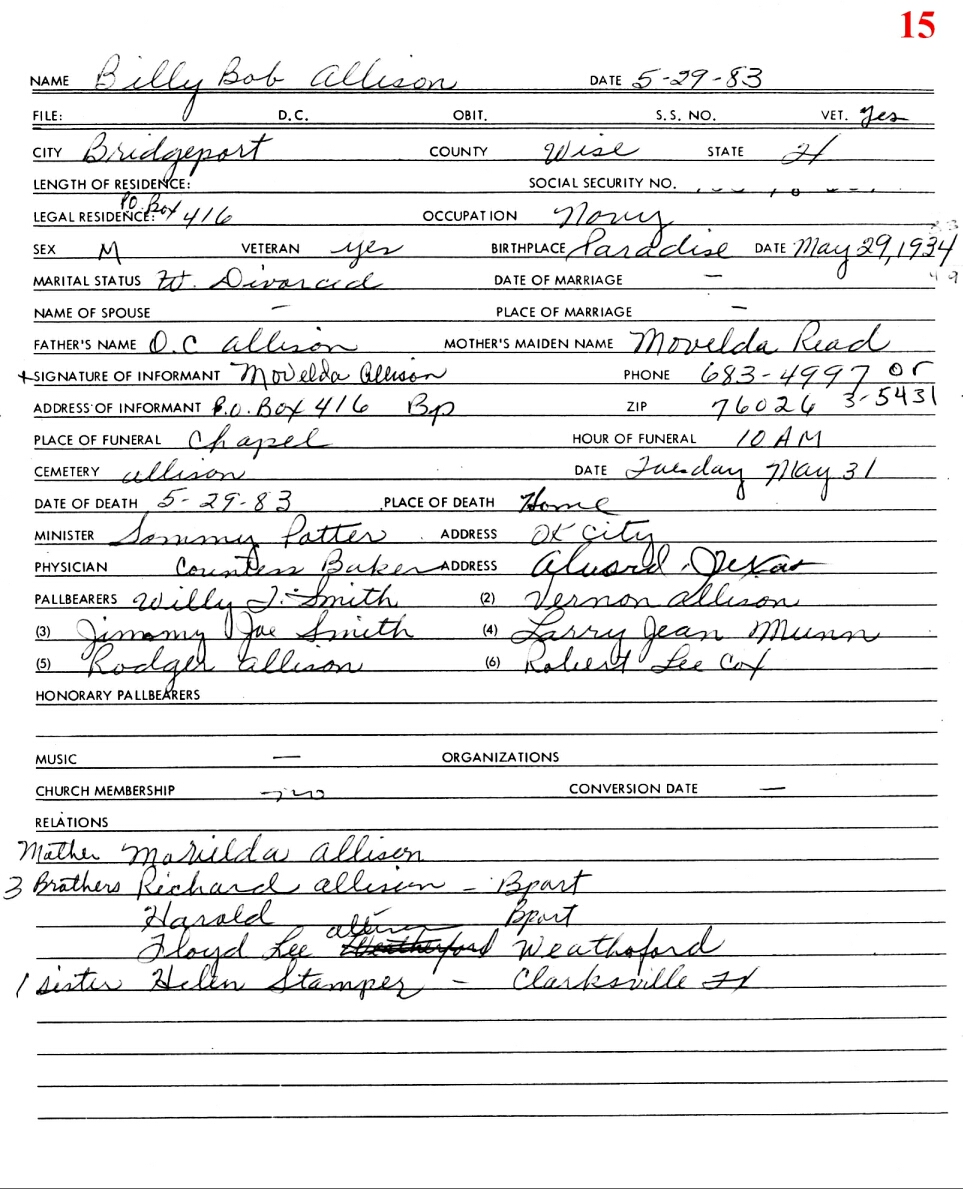 15
NAME Billy Bob Allison DATE 5-29-83
FILE: D.C. OBIT. S.S. NO. VET. Yes
CITY Bridgeport COUNTY Wise STATE TX
LENGTH OF RESIDENCE: SOCIAL SECURITY NO.
LEGAL RESIDENCE: P.O. Box 416 OCCUPATION Navy
SEX M VETERAN yes BIRTHPLACE Paradise DATE May 29, 1934
MARITAL STATUS Divorced DATE OF MARRIAGE —
49
NAME OF SPOUSE — PLACE OF MARRIAGE —
FATHER'S NAME O.C Allison MOTHER'S MAIDEN NAME Movelda Read
SIGNATURE OF INFORMANT Movelda Allison PHONE 683-4997 or
ADDRESS OF INFORMANT P.O. Box 416 Bp ZIP 76026 3-5431
PLACE OF FUNERAL Chapel HOUR OF FUNERAL 10 AM
CEMETERY Allison DATE Tuesday May 31
DATE OF DEATH 5-29-83 PLACE OF DEATH Home
MINISTER Sammy Potter ADDRESS OK City
PHYSICIAN Countess Baker ADDRESS Alvord, Texas
PALLBEARERS Willy J. Smith (2) Vernon Allison
(3) Jimmy Joe Smith (4) Larry Jean Munn
(5) Rodger Allison (6) Robert Lee Cox
HONORARY PALLBEARERS
MUSIC — ORGANIZATIONS
CHURCH MEMBERSHIP no CONVERSION DATE —
RELATIONS
Mother Movelda Allison
3 Brothers Richard Allison - Bport
Harold Bport
Floyd Lee Allison Weatherford Weathoford
1 sister Helen Stamper - Clarksville TX